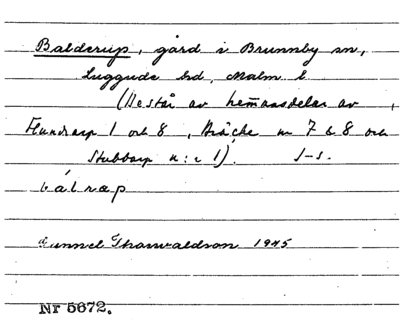 Balderup, gård i Brunnby sn,
Luggude hd, Malm. l.
(Består av hemmansdelar av ,
Flundrarp 1 och 8, Bräcke nr 7 & 8 och
Stubbarp n:r 1). J-s.
bálræp
Gunnel Thorwaldson 1945
Nr 5672.